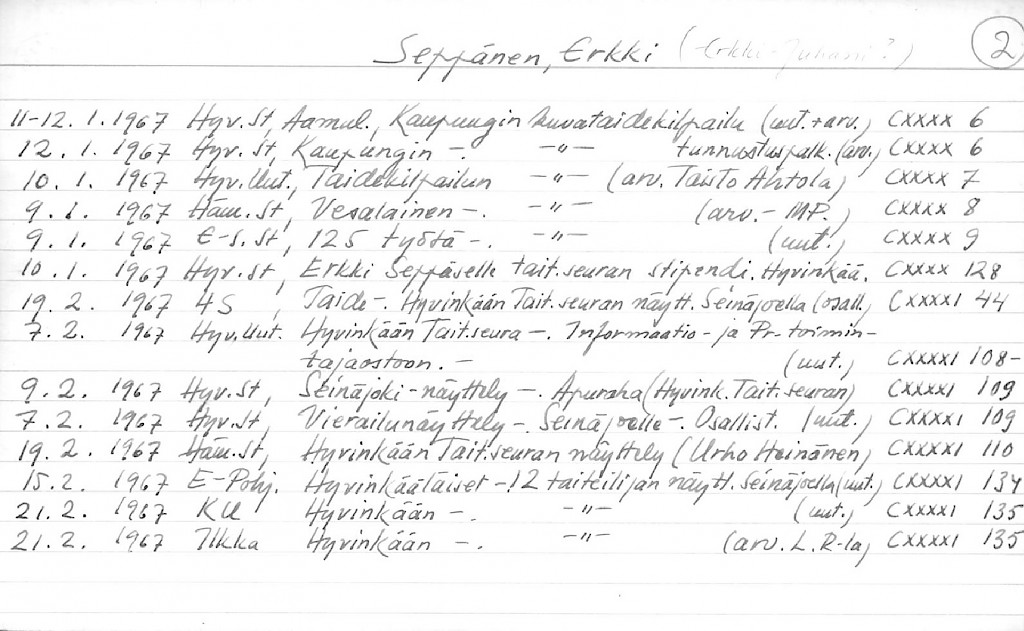 Seppänen, Erkki (Erkki Juhani?) 2
11-12. 1. 1967 Hyv. St, Aamul., Kaupungin kuvataidekilpailu (uut. + arv.) CXXXX 6
12. 1. 1967 Hyv. St, Kaupungin -. -"- tunnustuspalk. (arv.) CXXXX 6
10. 1. 1967 Hyv. Uut., Taidekilpailun -"- (arv. Taisto Ahtola) CXXXX 7
9. 1. 1967 Häm. St, Vesalainen -. -"- (arv. - MP.) CXXXX 8
9. 1. 1967 E-S. St, 125 työtä -. -"- (uut.) CXXXX 9
10. 1. 1967 Hyv. St, Erkki Seppäselle tait. seuran stipendi. Hyvinkää. CXXXX 128
19. 2. 1967 4S, Taide -. Hyvinkään Tait. seuran näytt. Seinäjoella (osall.) CXXXXI 44
7. 2. 1967 Hyv. Uut. Hyvinkään Tait. seura -. Informaatio- ja Pr-toimin-
tajaostoon. - (uut.) CXXXXI 108-
9. 2. 1967 Hyv. St, Seinäjoki-näyttely -. Apuraha (Hyvink. Tait. seuran) CXXXXI 109
7. 2. 1967 Hyv. St, Vierailunäyttely -. Seinäjoelle -. Osallist. (uut.) CXXXXI 109
19. 2. 1967 Häm. St, Hyvinkään Tait. seuran näyttely (Urho Heinänen) CXXXXI 110
15. 2. 1967 E-Pohj. Hyvinkääläiset -. 12 taiteilijan näytt. Seinäjoella (uut.) CXXXXI 134
21. 2. 1967 KU Hyvinkään -. -"- (uut.) CXXXXI 135
21. 2. 1967 Ilkka Hyvinkään -. -"- (arv. L. R-la) CXXXXI 135